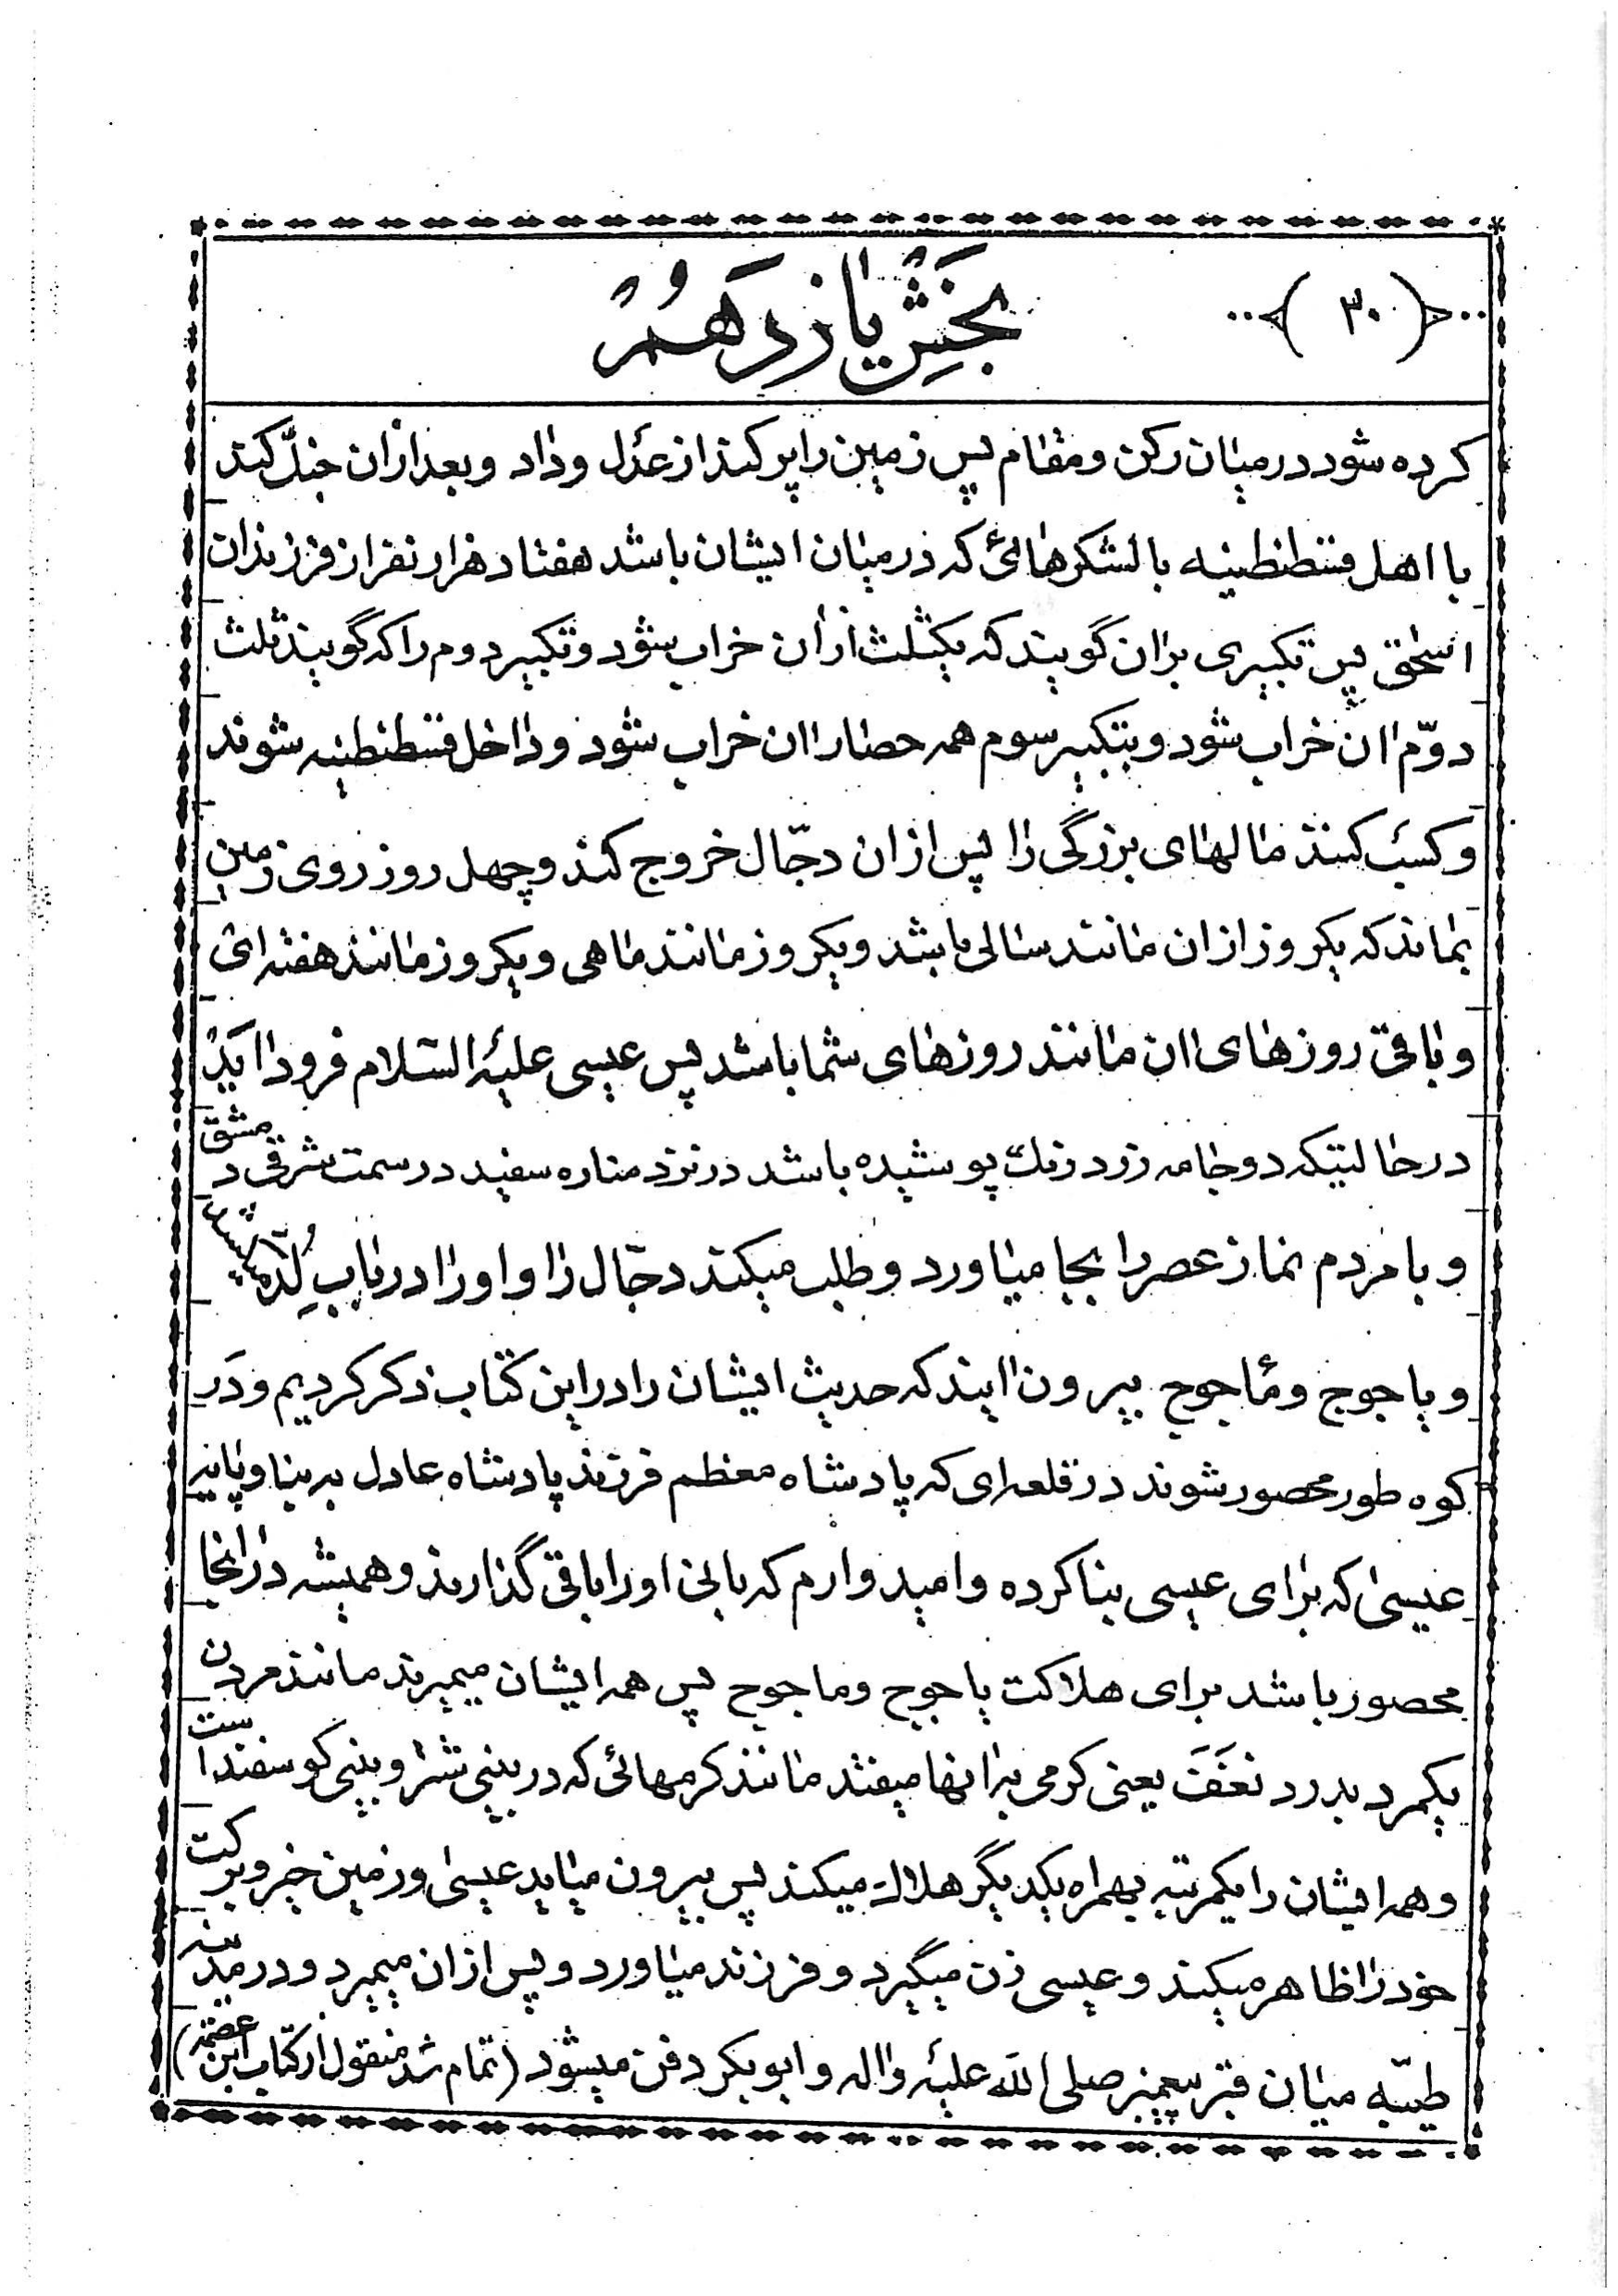 ﴿ ۳۰ ﴾
بخش یازدهم
کرده شود در میان رکن و مقام پس زمین را پر کند از عدل و داد و بعد از آن جنگ کند
با اهل قسطنطینیه با لشکرهائی که در میان ایشان باشد هفتاد هزار نفر از فرزندان
اسحق پس تکبیری بر آن گویند که یکثلث از آن خراب شود و تکبیر دوم را که گویند ثلث
دوّم آن خراب شود و بتکبیر سوم همه حصار آن خراب شود و داخل قسطنطنیه شوند
و کسب کنند مالهای بزرگی را پس از آن دجّال خروج کند و چهل روز روی زمین
بماند که یکروز از آن مانند سالی باشد و یکروز مانند ماهی و یکروز مانند هفته ای
و باقی روزهای آن مانند روزهای شما باشد پس عیسی علیه السلام فرود آید
در حالیتکه دو جامه زرد رنگ پوشیده باشد در نزد مناره سفید در سمت شرقی دمشق
و با مردم نماز عصر را بجا میآورد و طلب میکند دجّال را و او را در باب لُدّ میکشد
و یاجوج و مأجوج بیرون آیند که حدیث ایشان را در این کتاب ذکر کردیم و در
کوه طور محصور شوند در قلعه ای که پادشاه معظم فرزند پادشاه عادل به بنا و پایه
عیسی که برای عیسی بنا کرده و امیدوارم که بانی او را باقی گذارند و همیشه در آنجا
محصور باشد برای هلاکت یاجوج و ماجوج پس همه ایشان میمیرند مانند مردن
یکمرد بدرد نغفت یعنی کرمی بر آنها میفتد مانند کرمهائی که در بینی شتر و بینی کوسفند است
و همه ایشان را یکمرتبه بهمراه یکدیگر هلاک میکند پس بیرون میآید عیسی و زمین خیر و برکت
خود را ظاهر میکند و عیسی زن میگیرد و فرزند میآورد و پس از آن میمیرد و در مدینه
طیّبه میان قبر پیغمبر صلی الله علیه و آله و ابوبکر دفن میشود (تمام شد منقول از کتاب ابن)